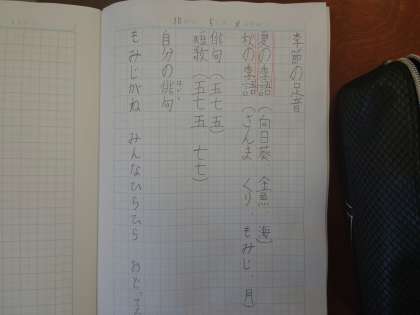 季節の足音
夏の季語(向日葵 金魚 海)
秋の季語(さんま くり もみじ、月)
俳句(五七五)
短歌(五七五 七七)
自分の俳句
もみじがね みんなひらひら おどってる